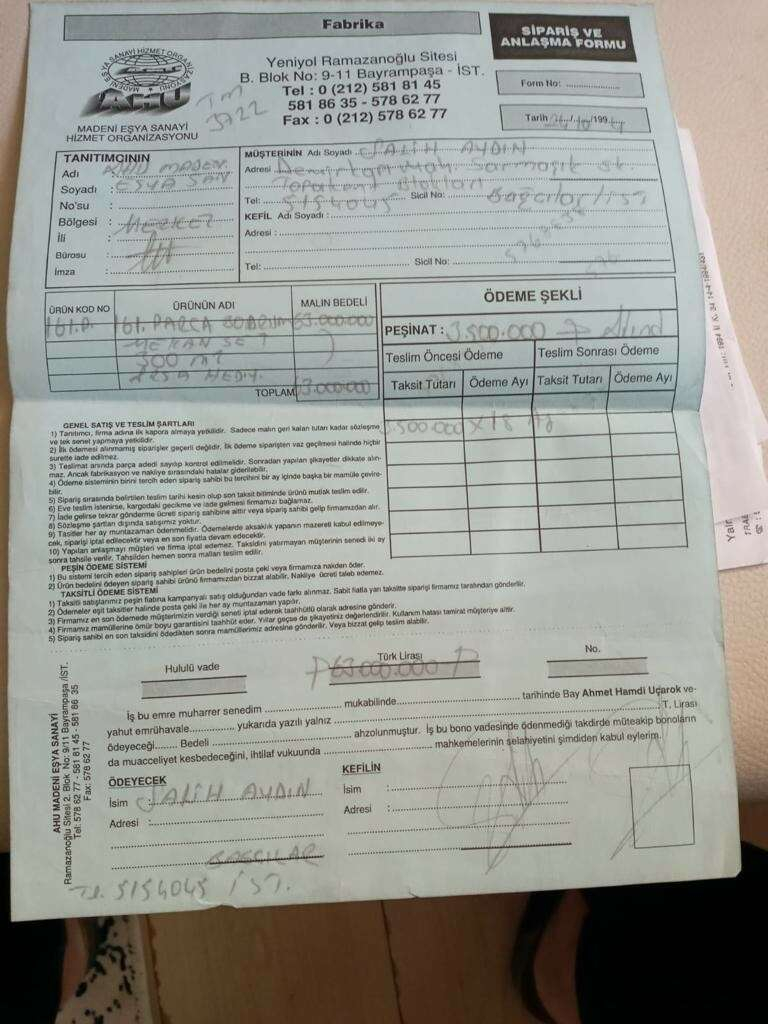 Fabrika
SİPARİŞ VE
ANLAŞMA FORMU
Yeniyol Ramazanoğlu Sitesi
B. Blok No: 9-11 Bayrampaşa - İST.
Tel : 0 (212) 581 81 45
581 86 35 - 578 62 77
Fax : 0 (212) 578 62 77
AHU
MADENİ EŞYA SANAYİ
HİZMET ORGANİZASYONU
TM
3722
Form No:
Tarih 199
TANITIMCININ
Adı : AHU MADEN
Soyadı : EŞYA SAN
No'su :
Bölgesi : MERKEZ
İli :
Bürosu :
İmza :
MÜŞTERİNİN Adı Soyadı : SALİH AYDIN
Adresi
Tel: 5154045 Sicil No: Bağcılar / İST
KEFİL Adı Soyadı :
Adresi :
Tel: Sicil No:
ÜRÜN KOD NO ÜRÜNÜN ADI MALIN BEDELİ
161.P. 161. PARÇA 63.000.000
300
TOPLAM 63.000.000
ÖDEME ŞEKLİ
PEŞİNAT : 3.500.000
Teslim Öncesi Ödeme Teslim Sonrası Ödeme
Taksit Tutarı Ödeme Ayı Taksit Tutarı Ödeme Ayı
3.500.000 X Ay
GENEL SATIŞ VE TESLİM ŞARTLARI
1) Tanıtımcı, firma adına ilk kapora almaya yetkilidir. Sadece malın geri kalan tutarı kadar sözleşme
ve tek senet yapmaya yetkilidir.
2) İlk ödemesi alınmamış siparişler geçerli değildir. İlk ödeme siparişten vaz geçilmesi halinde hiçbir
surette iade edilmez.
3) Teslimat anında parça adedi sayılıp kontrol edilmelidir. Sonradan yapılan şikayetler dikkate alın-
maz. Ancak fabrikasyon ve nakliye sırasındaki hatalar giderilebilir.
4) Ödeme sisteminin birini tercih eden sipariş sahibi bu tercihini bir ay içinde başka bir mamüle çevire-
bilir.
5) Sipariş sırasında belirtilen teslim tarihi kesin olup son taksit bitiminde ürünü mutlak teslim edilir.
6) Eve teslim istenirse, kargodaki gecikme ve iade gelmesi firmamızı bağlamaz.
7) İade gelirse tekrar gönderme ücreti sipariş sahibine aittir veya sipariş sahibi gelip firmamızdan alır.
8) Sözleşme şartları dışında satışımız yoktur.
9) Tasitler her ay muntazaman ödenmelidir. Ödemelerde aksaklık yapanın mazereti kabul edilmeye-
cek, siparişi iptal edilecektir veya en son fiyatla devam edecektir.
10) Yapılan anlaşmayı müşteri ve firma iptal edemez. Taksidini yatırmayan müşterinin senedi iki ay
sonra tahsile verilir. Tahsilden hemen sonra malları teslim edilir.
PEŞİN ÖDEME SİSTEMİ
1) Bu sistemi tercih eden sipariş sahipleri ürün bedelini posta çeki veya firmamıza nakden öder.
2) Ürün bedelini ödeyen sipariş sahibi ürünü firmamızdan bizzat alabilir. Nakliye ücreti talep edemez.
TAKSİTLİ ÖDEME SİSTEMİ
1) Taksitli satışlarımız peşin fiatına kampanyalı satış olduğundan vade farkı alınmaz. Sabit fiatla yarı taksitte siparişi firmamız tarafından gönderilir.
2) Ödemeler eşit taksitler halinde posta çeki ile her ay muntazaman yapılır.
3) Firmamız en son ödemede müşterimizin verdiği seneti iptal ederek taahhütlü olarak adresine gönderir.
4) Firmamız mamüllerine ömür boyu garantisini taahhüt eder. Yıllar geçse de şikayetiniz değerlendirilir. Kullanım hatası tamirat müşteriye aittir.
5) Sipariş sahibi en son taksidini ödedikten sonra mamüllerimiz adresine gönderilir. Veya bizzat gelip teslim alabilir.
Hululü vade Türk Lirası No.
63.000.000
İş bu emre muharrer senedim mukabilinde tarihinde Bay Ahmet Hamdi Uçarok ve-
yahut emrühavale yukarıda yazılı yalnız T. Lirası
ödeyeceği Bedeli ahzolunmuştur. İş bu bono vadesinde ödenmediği takdirde müteakip bonoların
da muacceliyet kesbedeceğini, ihtilaf vukuunda mahkemelerinin selahiyetini şimdiden kabul eylerim.
ÖDEYECEK
İsim : SALİH AYDIN
Adresi :
BAĞCILAR
Tl. 5154045 İST.
KEFİLİN
İsim :
Adresi :
AHU MADENİ EŞYA SANAYİ
Ramazanoğlu Sitesi 2. Blok No: 9/11 Bayrampaşa /İST.
Tel: 578 62 77 - 581 81 45 - 581 86 35
Fax: 578 62 77